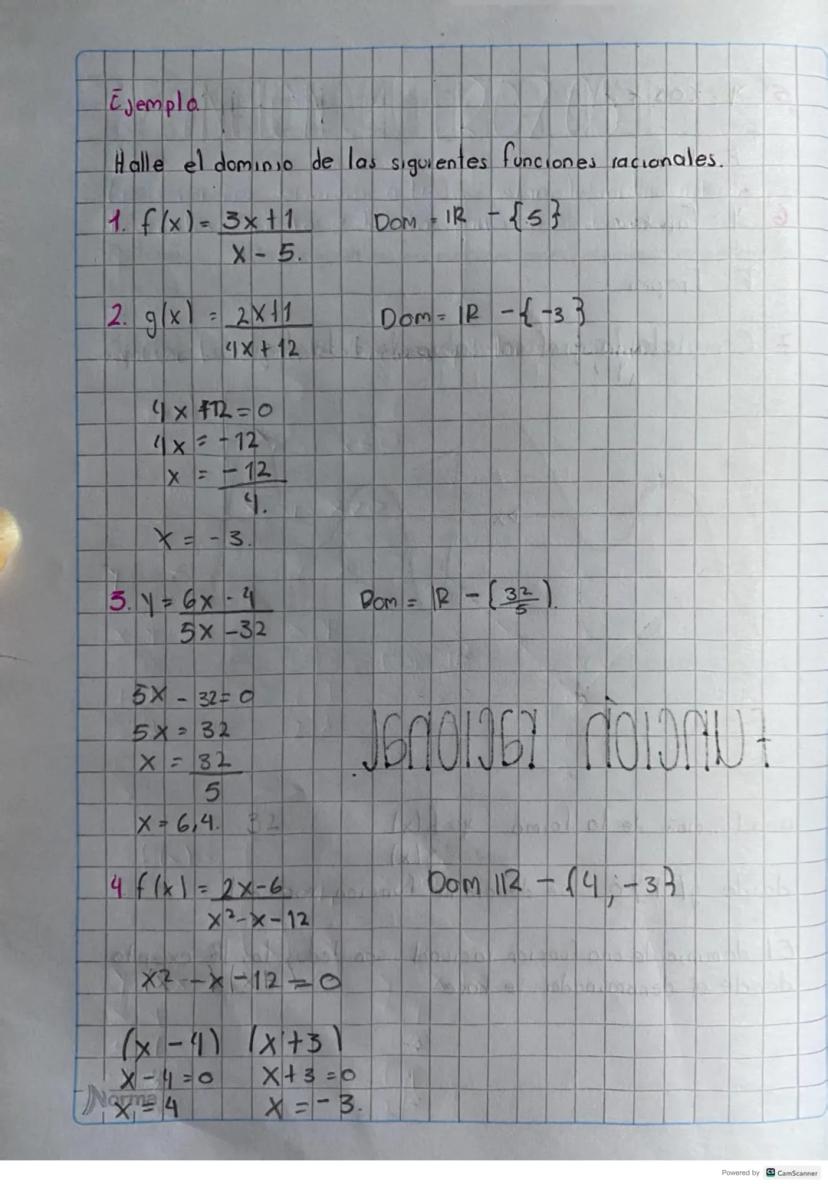 Ejemplo
Halle el dominio de las siguientes funciones racionales.
1. f(x) = 3x+1 Dom = IR - {5}
x - 5.
2. g(x) = 2x+1 Dom = IR - {-3}
4x + 12
4x +12 = 0
4x = -12
x = -12
4.
x = -3.
3. y = 6x - 4 Dom = IR - {32/5}.
5x - 32
5x - 32 = 0
5x = 32
x = 32
5
x = 6,4. 32
función racional
4 f(x) = 2x-6 Dom IR - {4, -3}
x²-x-12
x² - x - 12 = 0
(x - 4) (x + 3)
x - 4 = 0 x + 3 = 0
x = 4 x = -3.
Norma
Powered by CS CamScanner